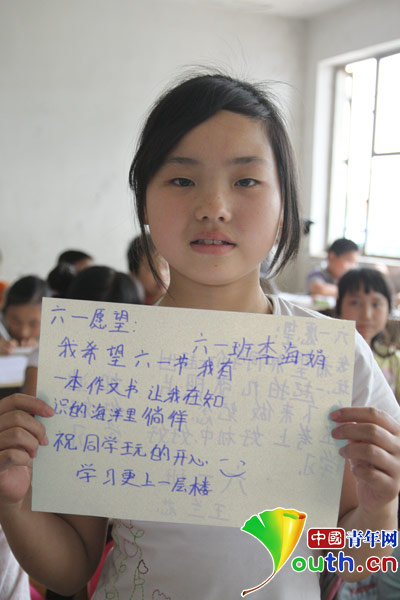 六一愿望:
六一班李海娟
我希望六一节我有
一本作文书 让我在知
识的海洋里倘佯
祝同学玩的开心
学习更上一层楼
中國青年网
youth.cn